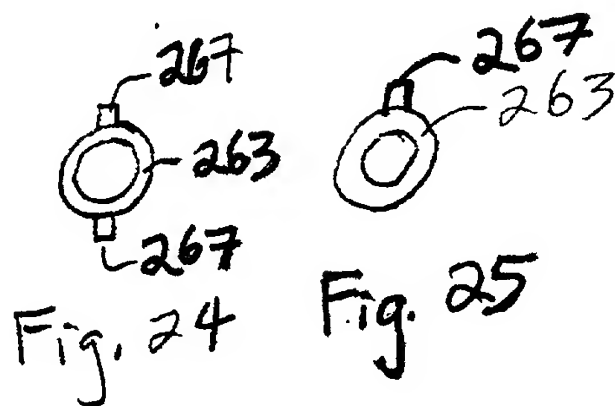 267
263
267
Fig. 24
267
263
Fig. 25